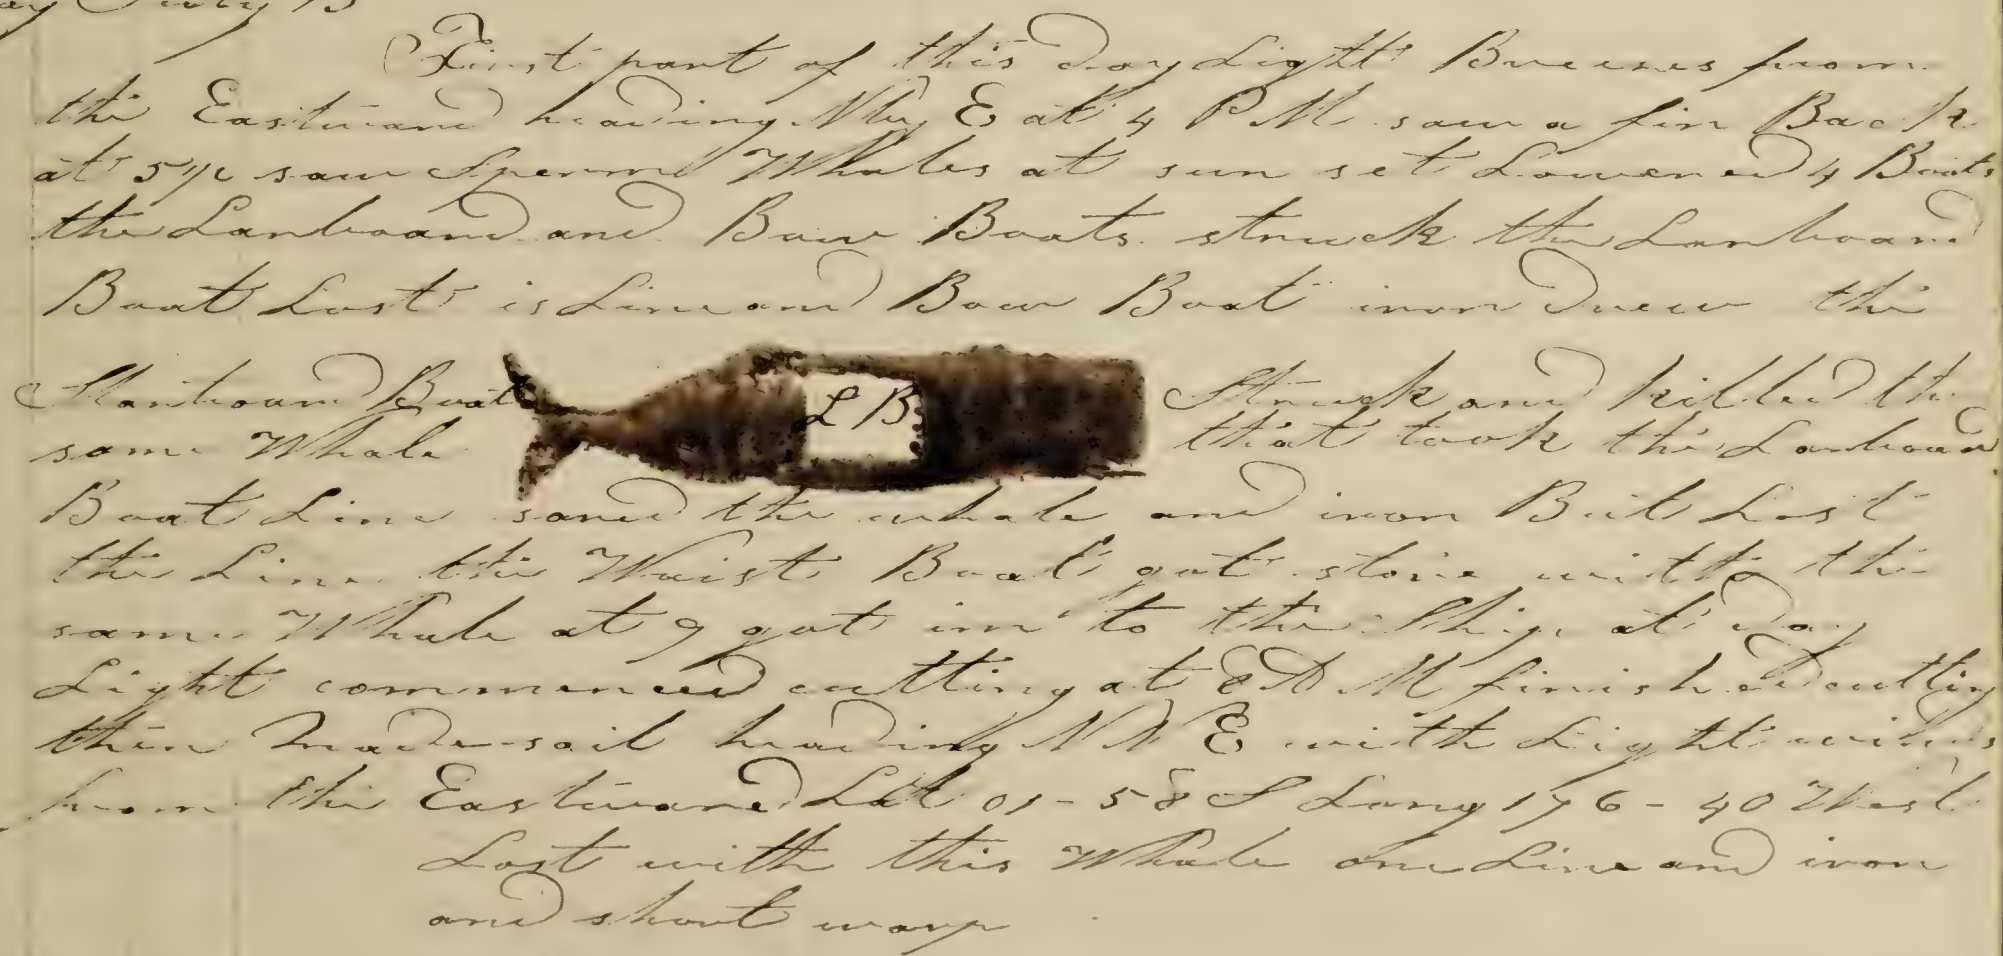 July 13
First part of this day Light Breeses from
the Eastward heading N by E at 4 P M saw a fin Back
at 5 1/2 saw Sperm Whales at sun set Lowered 4 Boats
the Larboard and Bow Boats struck the Larboard
Boat Lost is Line and Bow Boat iron drew the
Starboard Boat L B Struck and killed the
same Whale that took the Larboard
Boat Line saved the whale and iron But Lost
the Line the Waist Boat got stove with the
same Whale at 9 got im to the Ship at day
Light commenced cutting at 8 A M finished cutting
then made sail heading N N E with Light winds
from the Eastward Lat 01-58 S Long 176-40 West
Lost with this Whale one Line and iron
and short warp